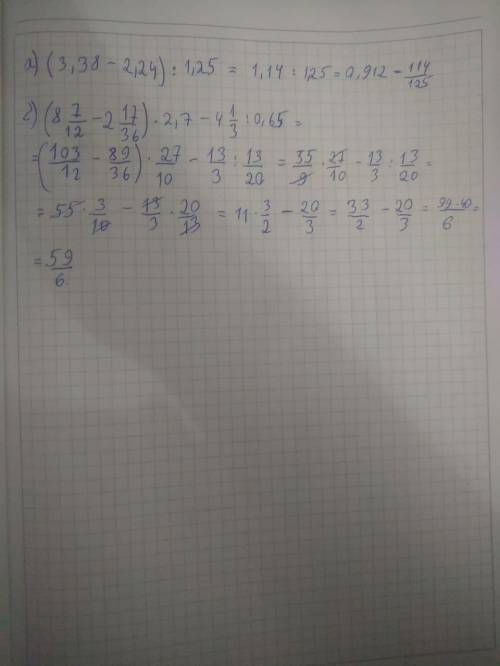 а) (3,38 − 2,24) : 1,25 = 1,14 : 1,25 = 0,912 − 114/125
б) (8 7/12 − 2 17/36) · 2,7 − 4 1/3 : 0,65 =
= (103/12 − 89/36) · 27/10 − 13/3 : 13/20 = 55/9 · 27/10 − 13/3 : 13/20 =
= 55 · 3/10 − 13/3 · 20/13 = 11 · 3/2 − 20/3 = 33/2 − 20/3 = 99-40/6 =
= 59/6